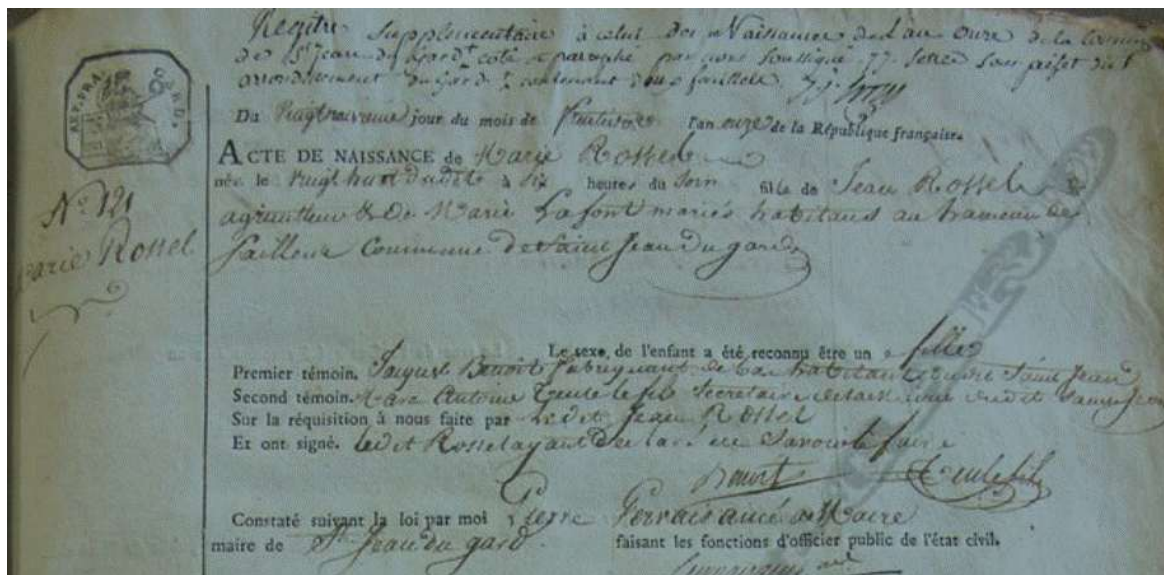 Registre supplémentaire à celui des Naissances de l'an onze de la Commune
de St Jean du Gard coté & paraphé par nous soussigné sous préfet du
arrondissement du Gard & contenant feuillets
Du Vingt neuvieme jour du mois de fructidor l'an onze de la République française.
ACTE DE NAISSANCE de Marie Rossel
née le vingt huit dudit à six heures du soir fille de Jean Rossel
agriculteur & de Marie Lafont mariés habitants au hameau de
Commune de Saint Jean du gard
N° 121
Marie Rossel
Le sexe de l'enfant a été reconnu être un fille
Premier témoin. Jacques Benoit fabriquant de bas habitant Saint Jean
Second témoin. Marc Antoine fils Secretaire dudit Saint Jean
Sur la réquisition à nous faite par Ledit Jean Rossel
Et ont signé. Ledit Rossel ayant declaré ne savoir le faire
Benoit fils
Constaté suivant la loi par moi Pierre Maire
maire de St Jean du gard faisant les fonctions d'officier public de l'état civil.